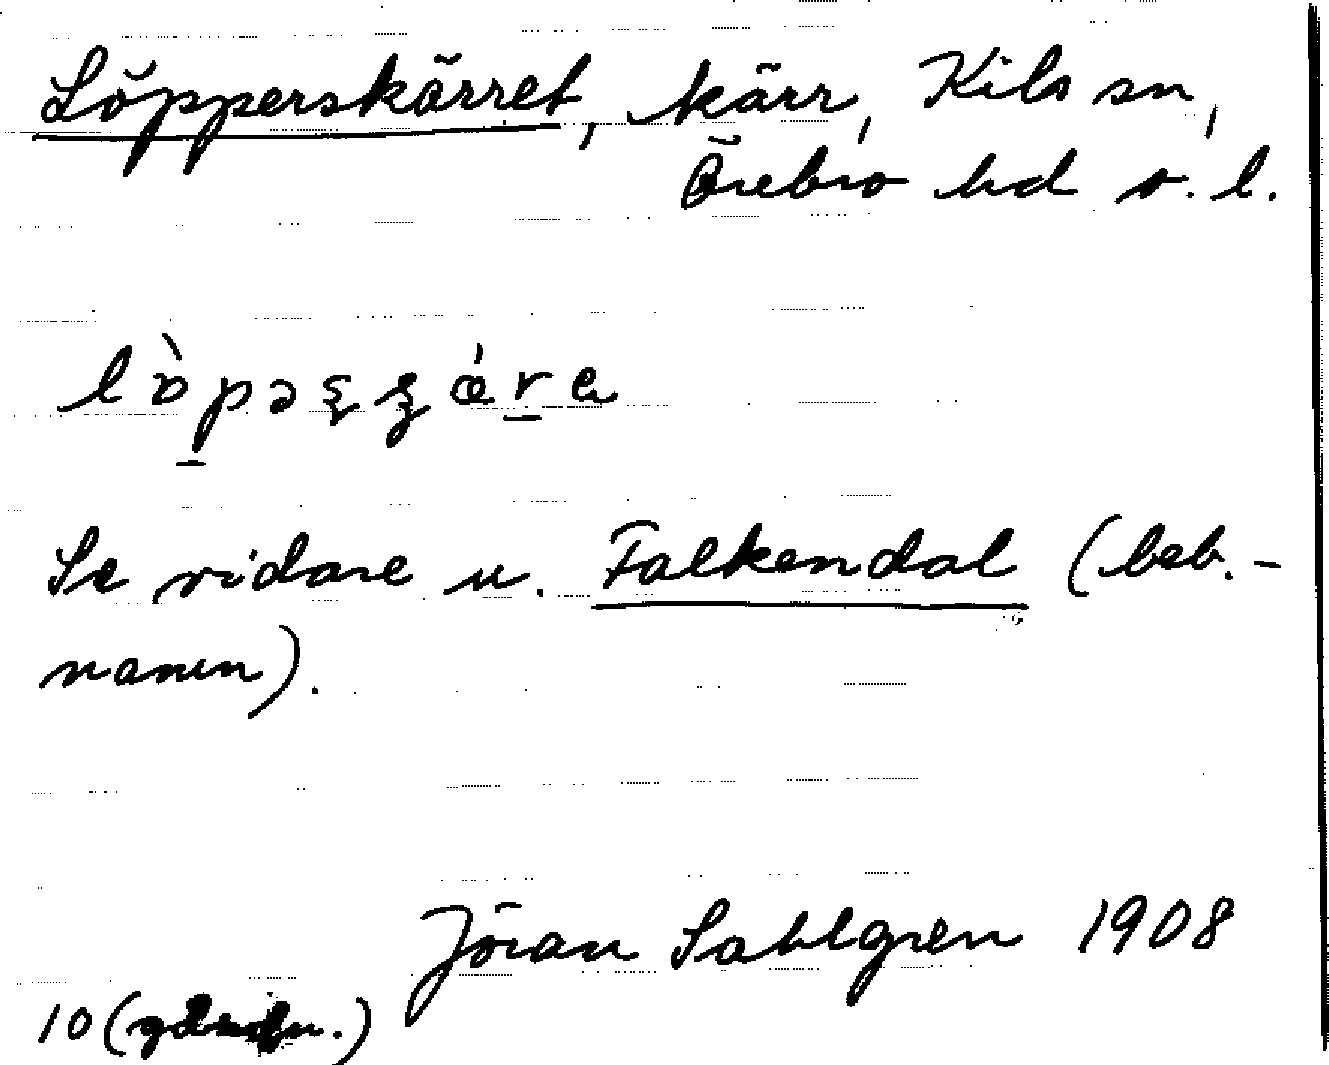 Löpperskärret, kärr, Kils sn,
Örebro hd o. l.
Se vidare u. Falkendal (beb.-
namn).
Jöran Sahlgren 1908
10